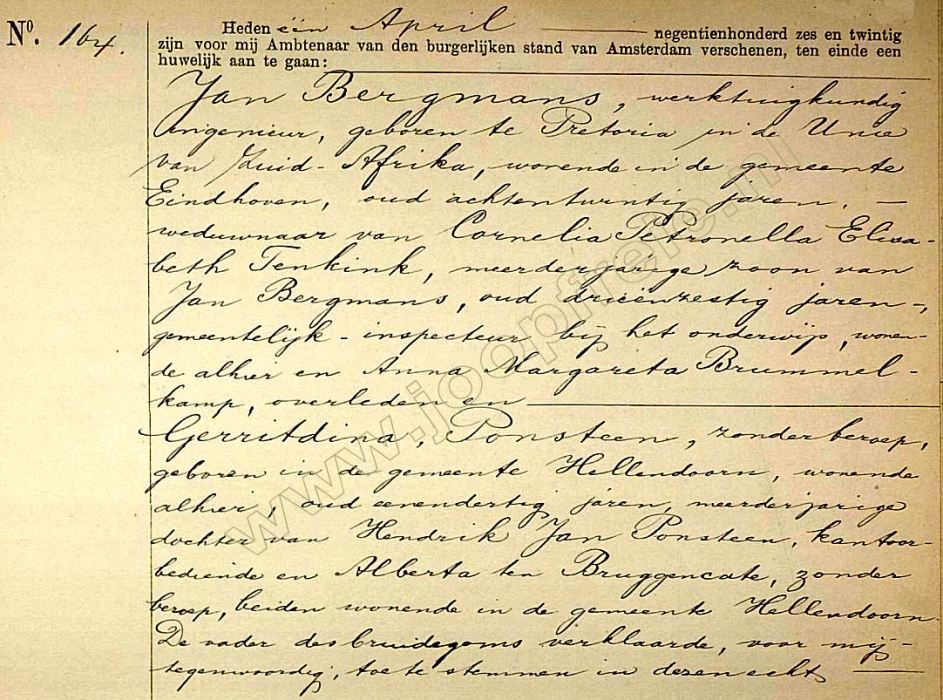 Nº. 164.
Heden één April negentienhonderd zes en twintig
zijn voor mij Ambtenaar van den burgerlijken stand van Amsterdam verschenen, ten einde een
huwelijk aan te gaan:
Jan Bergmans, werktuigkundig
ingenieur, geboren te Pretoria in de Unie
van Zuid-Afrika, wonende in de gemeente
Eindhoven, oud achtentwintig jaren, —
weduwnaar van Cornelia Petronella Elisa-
beth Tenkink, meerderjarige zoon van
Jan Bergmans, oud drieënzestig jaren,
gemeentelijk-inspecteur bij het onderwijs, wonen-
de alhier en Anna Margareta Brummel-
kamp, overleden en
Gerritdina Ponsteen, zonder beroep,
geboren in de gemeente Hellendoorn, wonende
alhier, oud eenendertig jaren, meerderjarige
dochter van Hendrik Jan Ponsteen, kantoor-
bediende en Alberta ten Bruggencate, zonder
beroep, beiden wonende in de gemeente Hellendoorn.
De vader des bruidegoms verklaarde, voor mij
tegenwoordig, toe te stemmen in dezen echt,
www.joopfrefe.nl